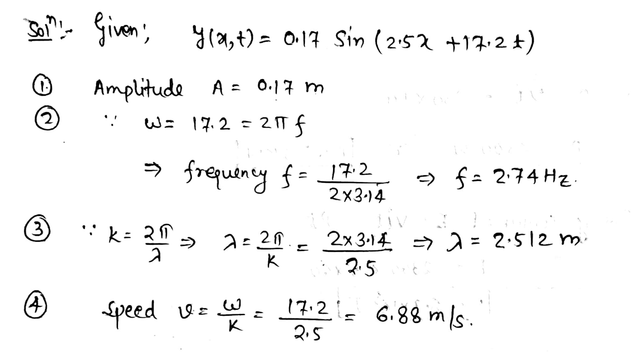 Solⁿ:- Given; y(x,t) = 0.17 Sin (2.5x + 17.2t)
① Amplitude A = 0.17 m
② ∵ ω = 17.2 = 2π f
⇒ frequency f = 17.2 / 2×3.14 ⇒ f = 2.74 Hz.
③ ∵ k = 2π/λ ⇒ λ = 2π/K = 2×3.14 / 2.5 ⇒ λ = 2.512 m.
④ Speed v = ω/K = 17.2 / 2.5 = 6.88 m/s.